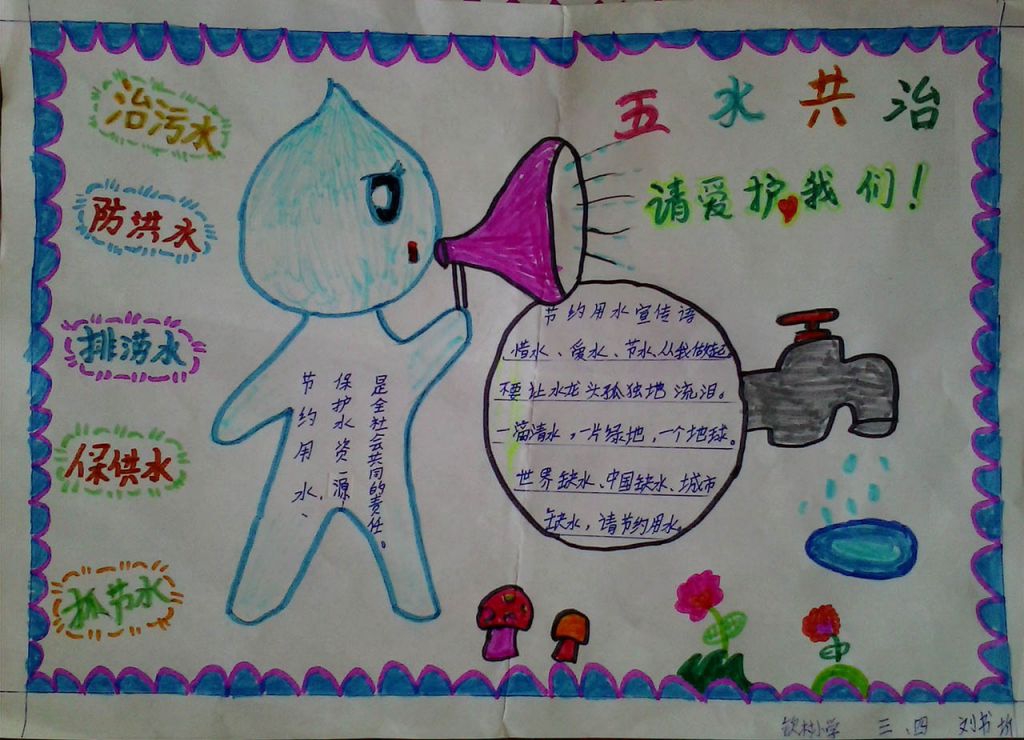 五水共治
请爱护我们！
治污水
防洪水
排涝水
保供水
抓节水
节约用水、
保护水资源，
是全社会共同的责任。
节约用水宣传语
惜水、爱水、节水、从我做起
不要让水龙头孤独地流泪。
一滴清水，一片绿地，一个地球。
世界缺水、中国缺水、城市
缺水，请节约用水。
小学 三、四 刘书